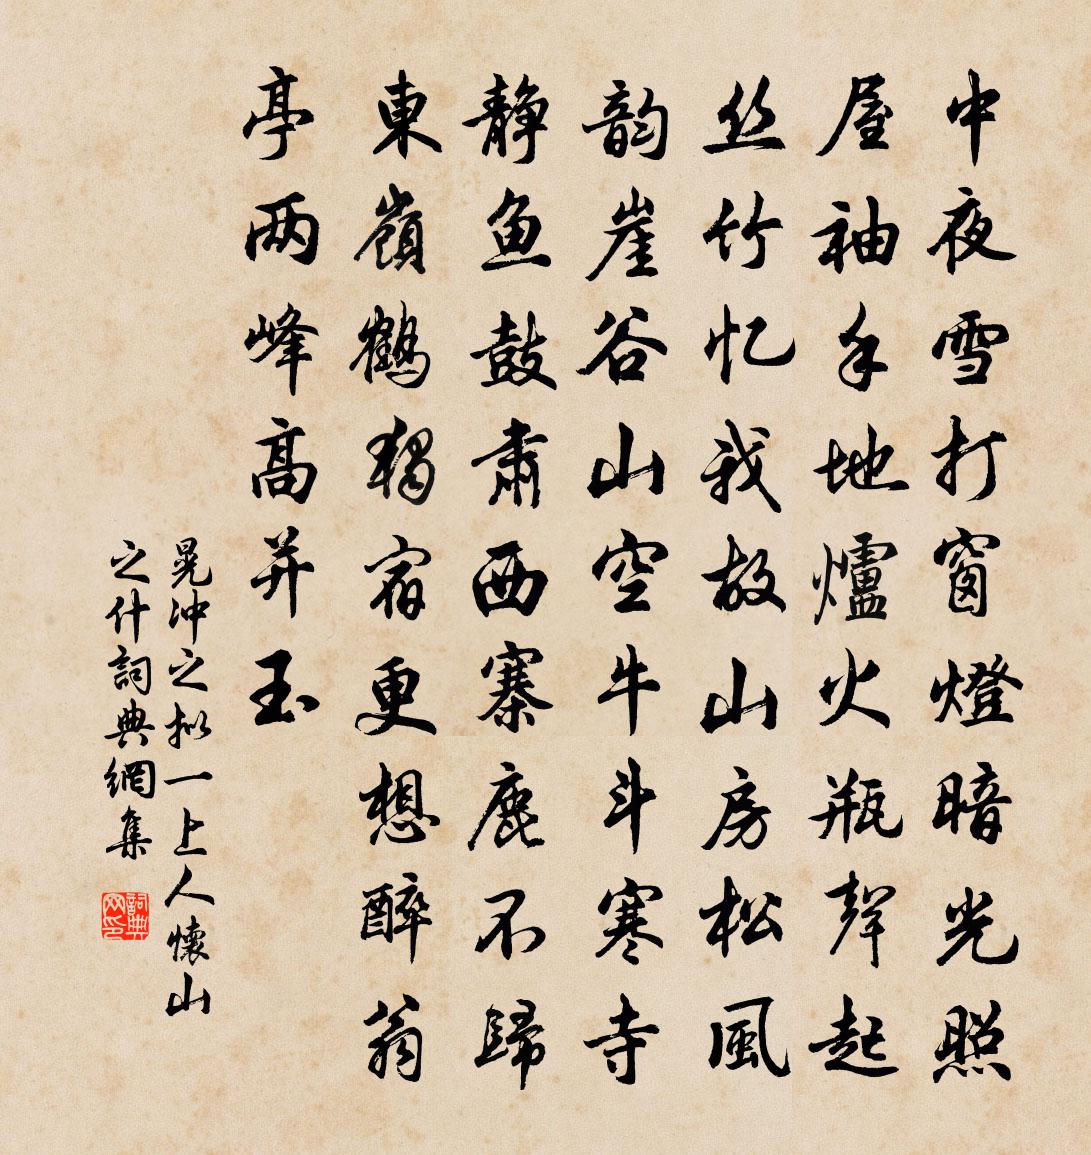 中夜雪打窗燈暗光照
屋袖手地爐火瓶聲起
丝竹忆我故山房松風
韵崖谷山空牛斗寒寺
静鱼鼓肅西寨鹿不歸
東嶺鶴獨宿更想醉翁
亭两峰高并玉
晁冲之拟一上人懷山
之什詞典網集
詞典网印